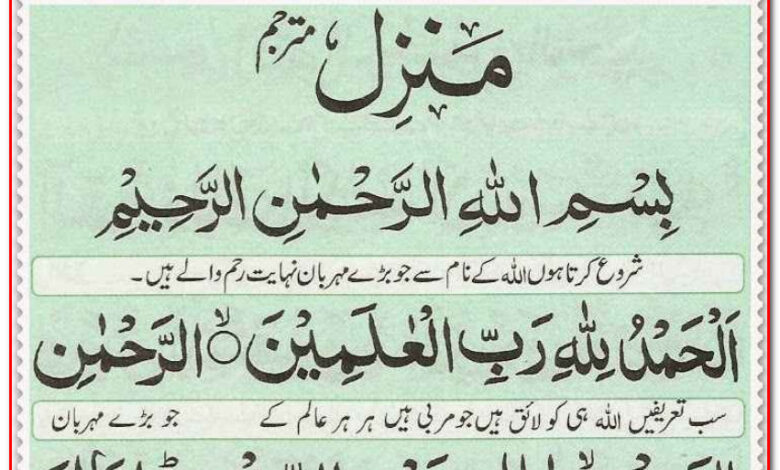 مَنْزِل مترجم
بِسْمِ اللهِ الرَّحْمٰنِ الرَّحِيْمِ
شروع کرتا ہوں اللہ کے نام سے جو بڑے مہربان نہایت رحم والے ہیں۔
اَلْحَمْدُ لِلّٰهِ رَبِّ الْعٰلَمِيْنَ ۙ الرَّحْمٰنِ
سب تعریفیں اللہ ہی کو لائق ہیں جو مربی ہیں ہر ہر عالم کے جو بڑے مہربان